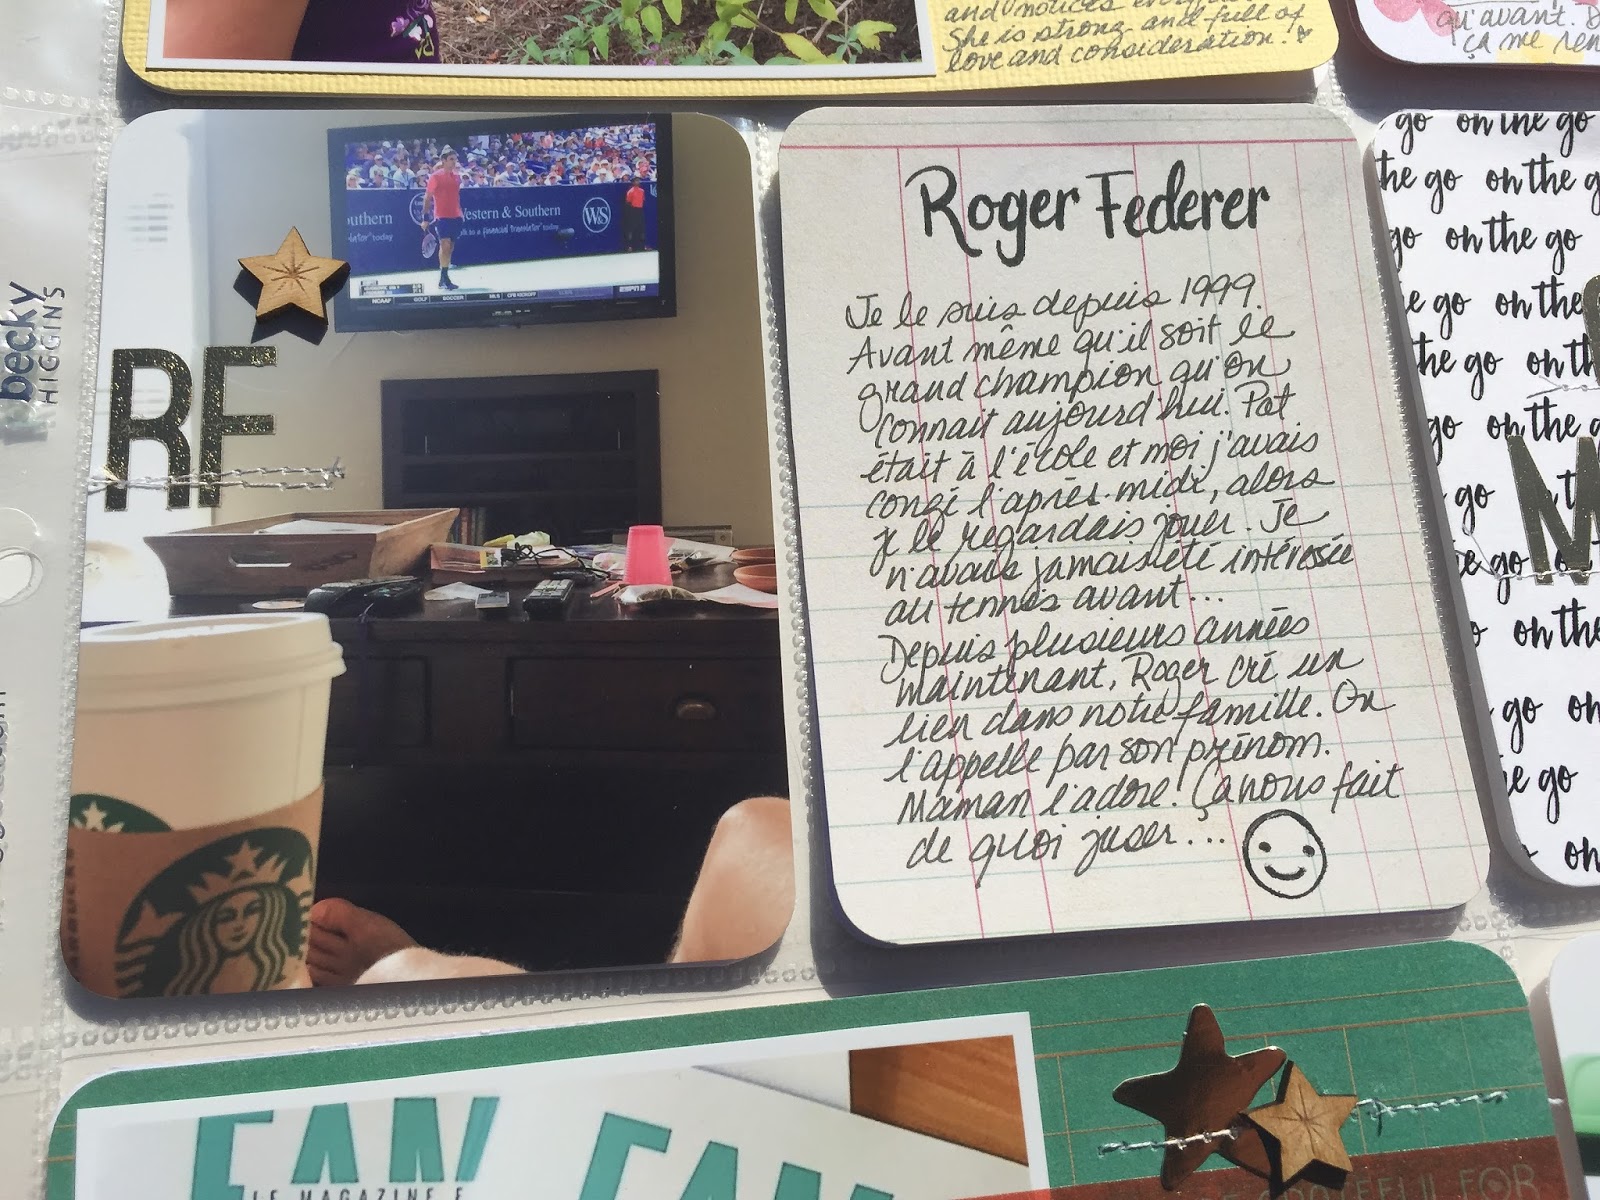 and notices
She is strong and full of
love and consideration.
qu'avant.
ça me ren
becky
HIGGINS
uthern
Western & Southern
W&S
NCAAF GOLF SOCCER
ESPN2
RF
Roger Federer
Je le suis depuis 1999.
Avant même qu'il soit le
grand champion qu'on
connaît aujourd'hui. Pat
était à l'école et moi j'avais
congé l'après-midi, alors
je le regardais jouer. Je
n'avais jamais été intéressée
au tennis avant...
Depuis plusieurs années
maintenant, Roger cré un
lien dans notre famille. On
l'appelle par son prénom.
Maman l'adore! Ça nous fait
de quoi jaser...
go on the go
the go on the g
go on the go
e go on the
the go on th
go on the g
go
go on the
o on the
go on
e go
on
M
FAN FAN
LE MAGAZINE